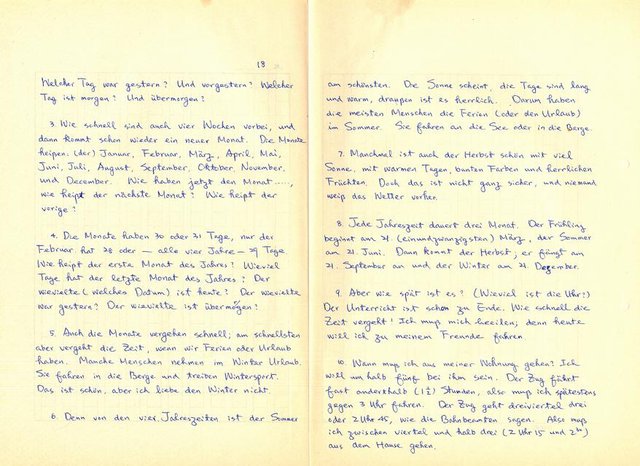 18
Welcher Tag war gestern? Und vorgestern? Welcher
Tag ist morgen? Und übermorgen?
3. Wie schnell sind auch vier Wochen vorbei, und
dann kommt schon wieder ein neuer Monat. Die Monate
heipen: (der) Januar, Februar, März, April, Mai,
Juni, Juli, August, September, Oktober, November,
und Dezember. Wie haben jetzt den Monat.....,
wie heipt der nächste Monat? Wie heipt der
vorige?
4. Die Monate haben 30 oder 31 Tage, nur der
Februar hat 28 oder — alle vier Jahre — 29 Tage.
Wie heipt der erste Monat des Jahres? Wieviel
Tage hat der letzte Monat des Jahres? Der
wievielte (welchen Datum) ist heute? Der wievielte
war gestern? Der wievielte ist übermogen?
5. Auch die Monate vergehen schnell; am schnellsten
aber vergeht die Zeit, wenn wir Ferien oder Urlaub
haben. Manche Menschen nehmen im Winter Urlaub.
Sie fahren in die Berge und treiben Wintersport.
Das ist schön, aber ich liebe den Winter nicht.
6. Denn von den vier Jahreszeiten ist der Sommer
am schönsten. Die Sonne scheint, die Tage sind lang
und warm, draupen ist es herrlich. Darum haben
die meisten Menschen die Ferien (oder den Urlaub)
im Sommer. Sie fahren an die See oder in die Berge.
7. Manchmel ist auch der Herbst schön mit viel
Sonne, mit warmen Tagen, bunten Farben und herrlichen
Früchten. Doch das ist nicht ganz sicher, und niemand
weip das Wetter vorher.
8. Jede Jahreszeit dauert drei Monat. Der Frühling
beginnt am 21 (einundzwanzigsten) März, der Sommer
am 21. Juni. Dann kommt der Herbst, er fängt am
21. September an und der Winter am 21. Dezember.
9. Aber wie spät ist es? (Wieviel ist die Uhr?)
Der Unterricht ist schon zu Ende. Wie schnell die
Zeit vergeht! Ich mup mich beeilen; denn heute
will ich zu meinem Freunde fahren
10. Wann mup ich aus meiner Wohnung gehen? Ich
will um halb fünf bei ihm sein. Der Zug fährt
fast anderthalb (1½) Stunden, also mup ich spätestens
gegen 3 Uhr fahren. Der Zug geht dreiviertel drei
oder 2 Uhr 45, wie die Bahnbeamten sagen. Also mup
ich zwischen viertel und halb drei (2 Uhr 15 und 2³⁰)
aus dem Hause gehen.